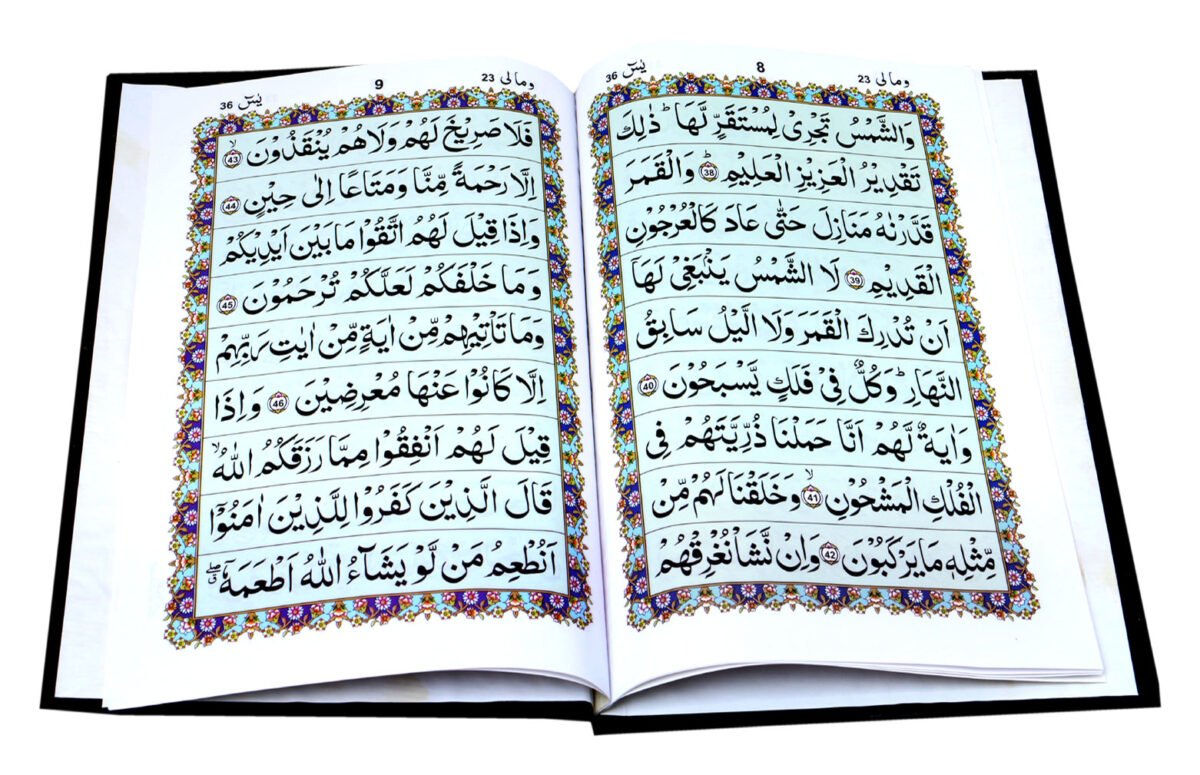 یٰسٓ 36
8
ومالی 23
وَالشَّمْسُ تَجْرِیْ لِمُسْتَقَرٍّ لَّهَا ؕ ذٰلِكَ
تَقْدِیْرُ الْعَزِیْزِ الْعَلِیْمِ ؕ 38 وَالْقَمَرَ
قَدَّرْنٰهُ مَنَازِلَ حَتّٰی عَادَ كَالْعُرْجُوْنِ
الْقَدِیْمِ 39 لَا الشَّمْسُ یَنْۢبَغِیْ لَهَاۤ
اَنْ تُدْرِكَ الْقَمَرَ وَلَا الَّیْلُ سَابِقُ
النَّهَارِ ؕ وَكُلٌّ فِیْ فَلَكٍ یَّسْبَحُوْنَ 40
وَاٰیَةٌ لَّهُمْ اَنَّا حَمَلْنَا ذُرِّیَّتَهُمْ فِی
الْفُلْكِ الْمَشْحُوْنِ ۙ 41 وَخَلَقْنَا لَهُمْ مِّنْ
مِّثْلِهٖ مَا یَرْكَبُوْنَ 42 وَاِنْ نَّشَاْ نُغْرِقْهُمْ
یٰسٓ 36
9
ومالی 23
فَلَا صَرِیْخَ لَهُمْ وَلَا هُمْ یُنْقَذُوْنَ ۙ 43
اِلَّا رَحْمَةً مِّنَّا وَمَتَاعًا اِلٰی حِیْنٍ 44
وَاِذَا قِیْلَ لَهُمُ اتَّقُوْا مَا بَیْنَ اَیْدِیْكُمْ
وَمَا خَلْفَكُمْ لَعَلَّكُمْ تُرْحَمُوْنَ 45
وَمَا تَاْتِیْهِمْ مِّنْ اٰیَةٍ مِّنْ اٰیٰتِ رَبِّهِمْ
اِلَّا كَانُوْا عَنْهَا مُعْرِضِیْنَ 46 وَاِذَا
قِیْلَ لَهُمْ اَنْفِقُوْا مِمَّا رَزَقَكُمُ اللّٰهُ ۙ
قَالَ الَّذِیْنَ كَفَرُوْا لِلَّذِیْنَ اٰمَنُوْۤا
اَنُطْعِمُ مَنْ لَّوْ یَشَآءُ اللّٰهُ اَطْعَمَهٗۤ ۖۗ